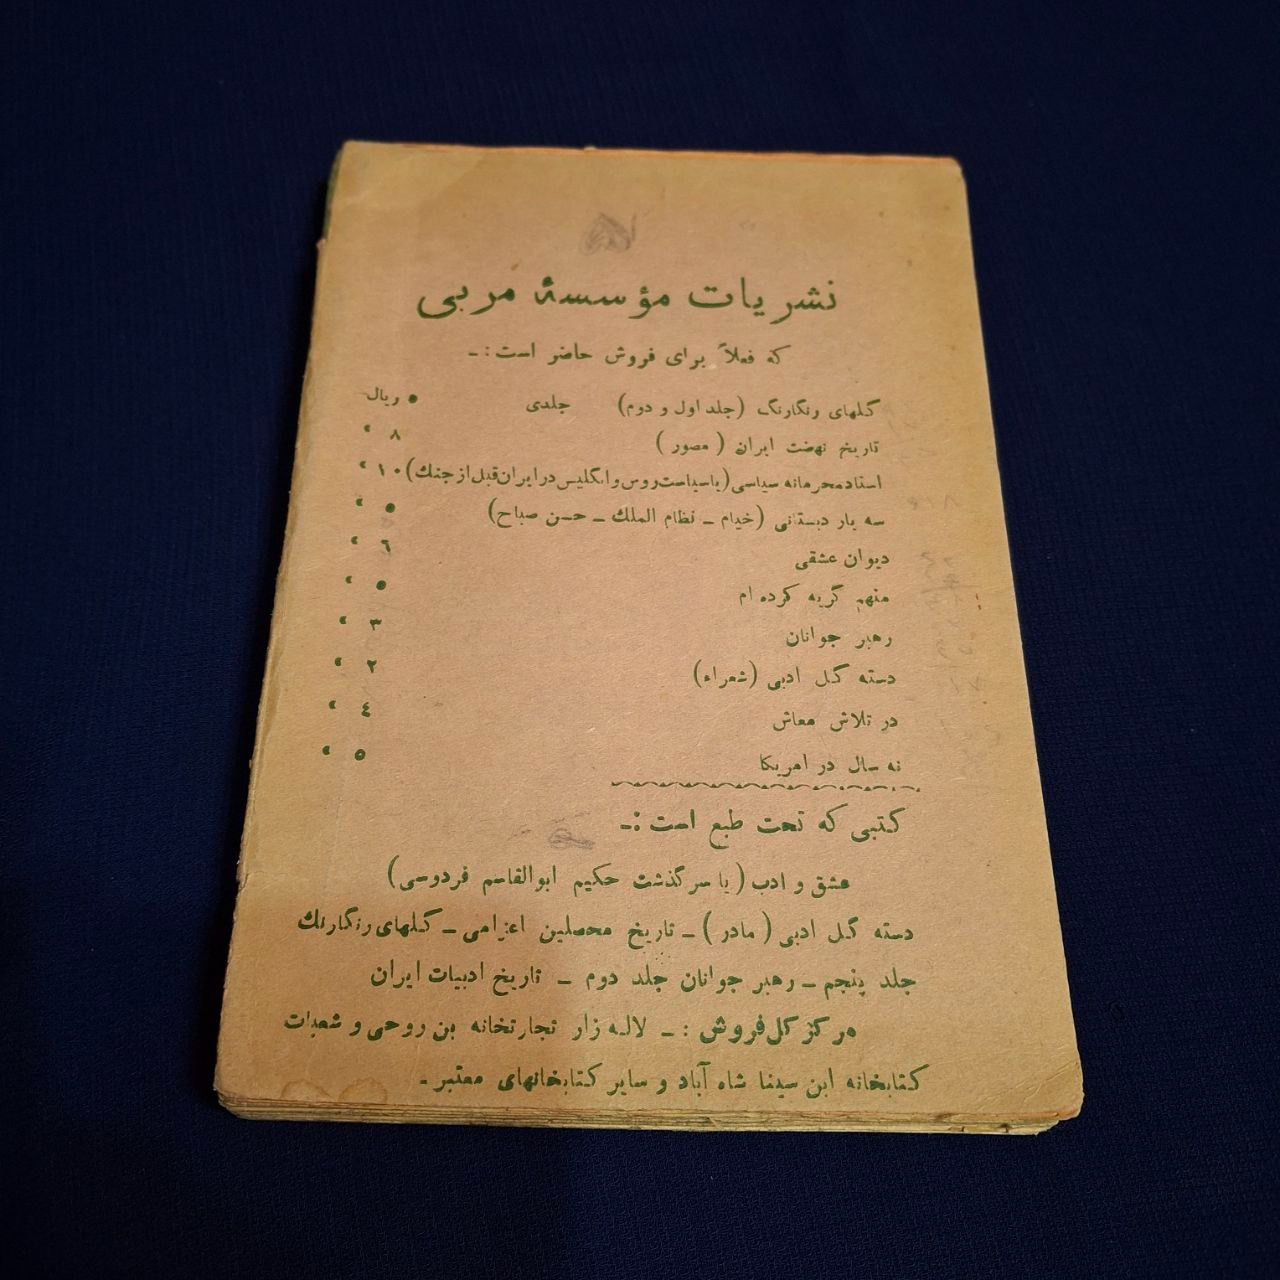 نشریات مؤسسهٔ مربی
که فعلاً برای فروش حاضر است :ـ
گلهای رنگارنگ (جلد اول و دوم) جلدی ۵ ریال
تاریخ نهضت ایران ( مصور ) ۸ »
اسناد محرمانه سیاسی (یا سیاست روس و انگلیس در ایران قبل از جنگ) ۱۰ »
سه یار دبستانی (خیام ـ نظام الملك ـ حسن صباح) ۵ »
دیوان عشقی ٦ »
منهم گریه کرده ام ۵ »
رهبر جوانان ۳ »
دسته گل ادبی (شعراء) ۲ »
در تلاش معاش ٤ »
نه سال در امریکا ۵ »
کتبی که تحت طبع است :ـ
عشق و ادب ( یا سرگذشت حکیم ابوالقاسم فردوسی)
دسته گل ادبی ( مادر ) ـ تاریخ محصلین اعزامی ـ گلهای رنگارنك
جلد پنجم ـ رهبر جوانان جلد دوم ـ تاریخ ادبیات ایران
مرکز کل فروش : ـ لاله زار تجارتخانه بن روحی و شعبات
کتابخانه ابن سینا شاه آباد و سایر کتابخانهای معتبر ـ